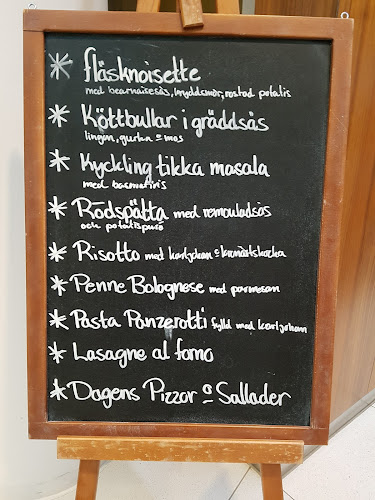 * fläsknoisette
med bearnaisesås, kryddsmör, rostad potatis
* Köttbullar i gräddsås
lingon, gurka o mos
* Kyckling tikka masala
med basmatiris
* Rödspätta med remouladsås
och potatispuré
* Risotto med karljohan o kronärtskocka
* Penne Bolognese med parmesan
* Pasta Panzerotti fylld med karljohann
* Lasagne al forno
* Dagens Pizzor o Sallader